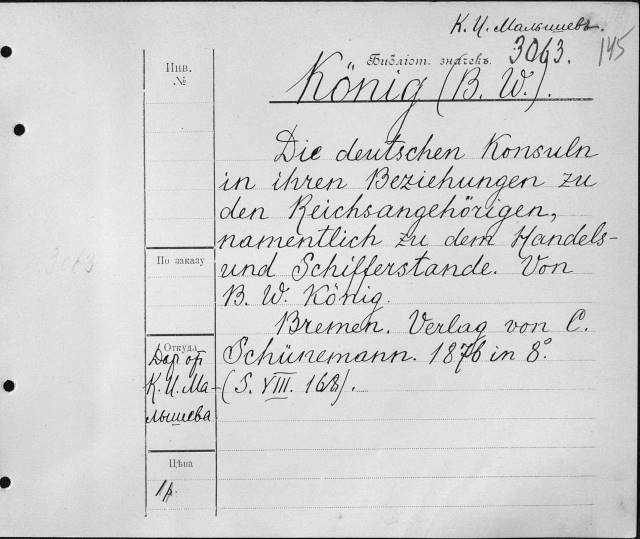 К. И. Малышевъ.
145
Библіот. значекъ. 3063.
König (B. W.).
Инв.
№
Die deutschen Konsuln
in ihren Beziehungen zu
den Reichsangehörigen,
namentlich zu dem Handels-
und Schifferstande. Von
B. W. König.
Bremen. Verlag von C.
Schünemann. 1876 in 8º.
(S. VIII. 168).
По заказу
Откуда
Дар от
К. И. Ма-
лышева
Цѣна
1 р.
3063